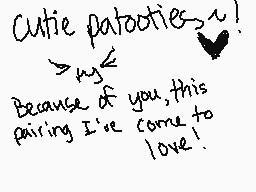 cutie patooties~!
Because of you, this
pairing I've come to
love!